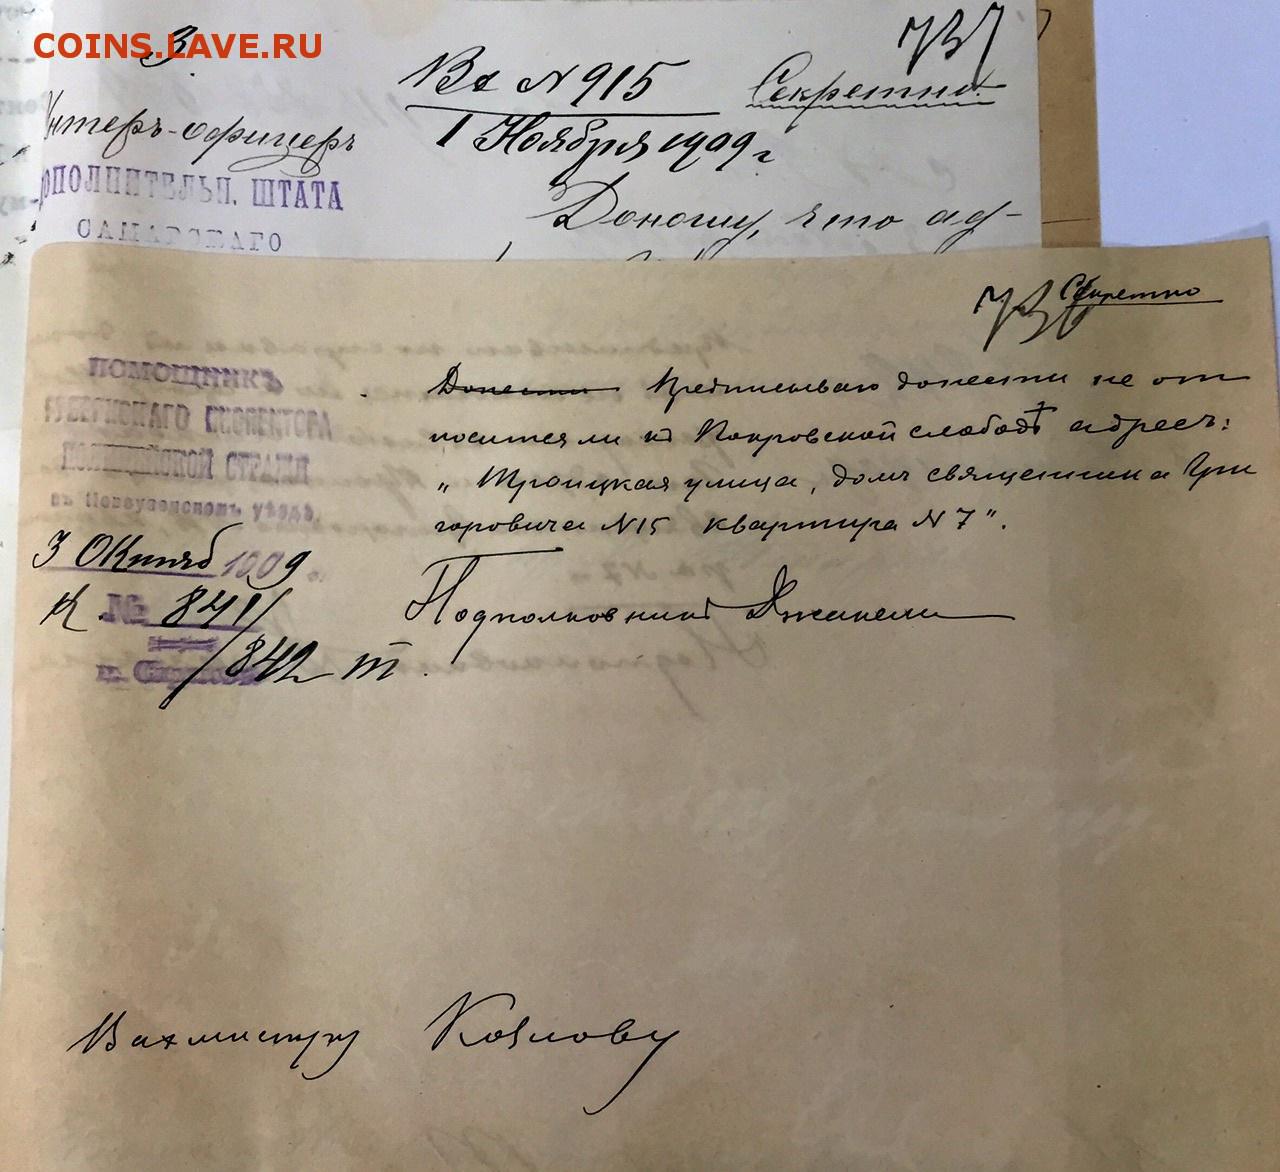 COINS.LAVE.RU
3.
Вх N 915
Секретно.
1 Ноября 1909 г
Унтеръ-офицеръ
ДОПОЛНИТЕЛЬН. ШТАТА
САМАРСКАГО
Доношу, что ад-
Секретно
ПОМОЩНИКЪ
ГУБЕРНСКАГО ИНСПЕКТОРА
ПОЛИЦЕЙСКОЙ СТРАЖИ
въ Новоузенскомъ уѣздѣ,
3 Октяб 1909 г.
№ 841/
/842
Донести Предписываю донести не от
носится ли къ Покровской слободѣ адресъ:
„Троицкая улица, домъ священника Гри
горовича N 15 квартира N 7".
Подполковникъ Джакели
Вахмистру Козлову